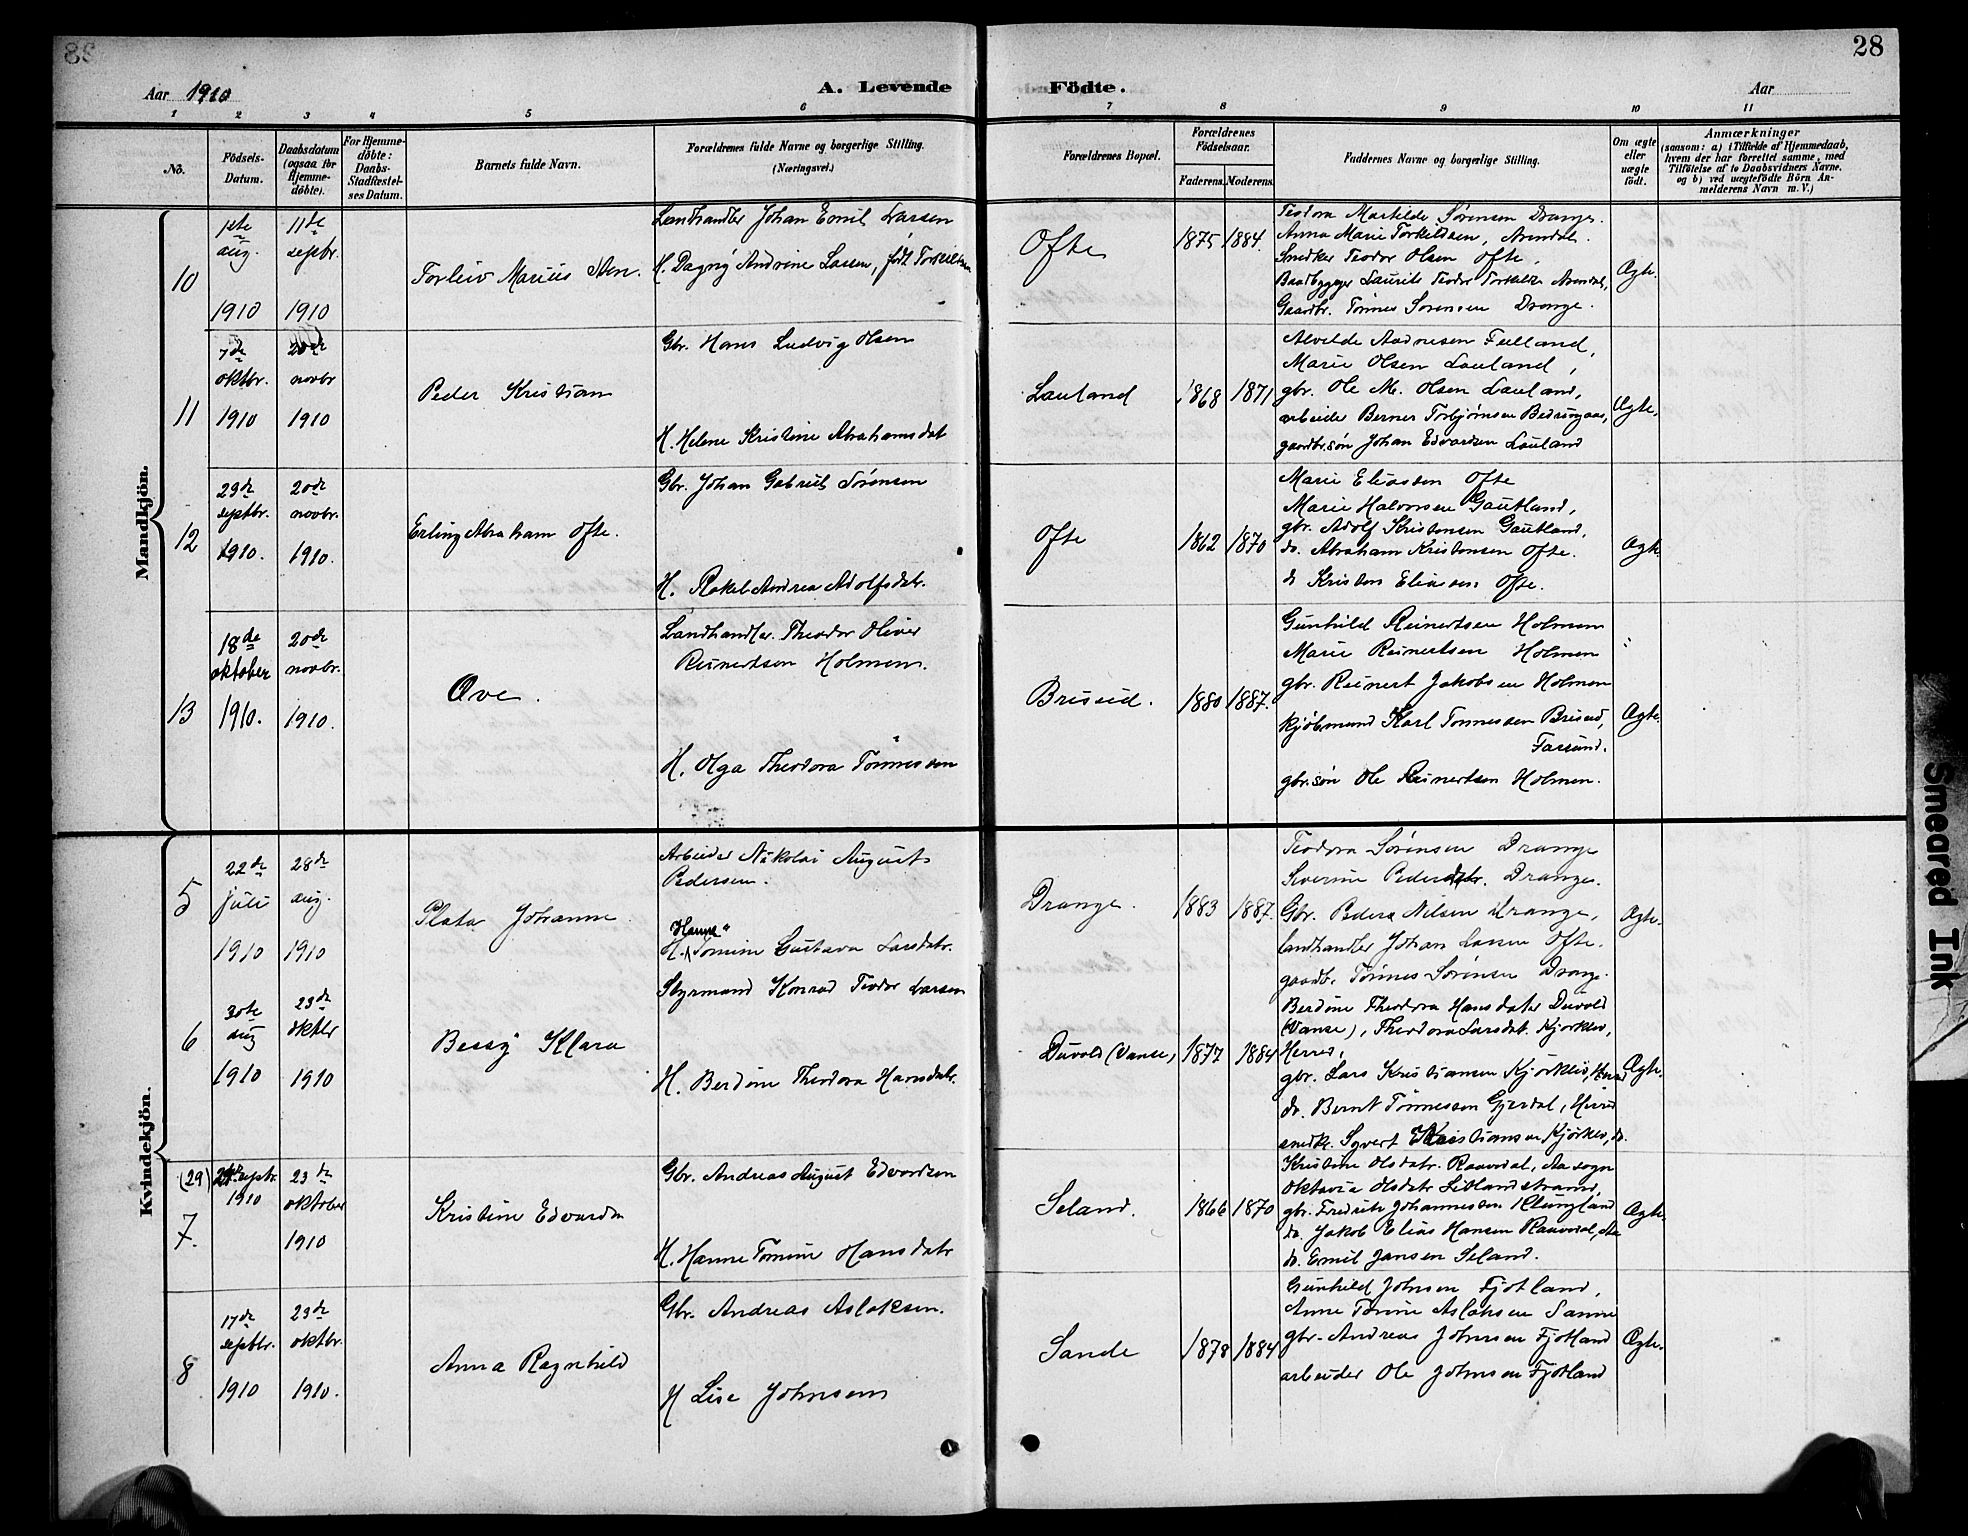 28
Aar 1910
A. Levende Födte.
Aar
1 2 3 4 5 6 7 8 9 10 11
No.
Födsels-Datum.
Daabsdatum (ogsaa för Hjemme-döbte).
For Hjemme-döbte: Daabs-Stadfæstelses Datum.
Barnets fulde Navn.
Forældrenes fulde Navne og borgerlige Stilling. (Næringsvei.)
Forældrenes Bopæl.
Forældrenes Födselsaar.
Faderens. Moderens.
Faddernes Navne og borgerlige Stilling.
Om ægte eller uægte födt.
Anmærkninger
(saasom: a) i Tilfælde af Hjemmedaab, hvem der har forrettet samme, med Tilföielse af to Daabsvidners Navne, og b) ved uægtefödte Börn Anmelderens Navn m. V.)
Mandkjön.
10
1ste aug. 1910
11te septbr. 1910
Torleiv Marius Sten.
Landhandler Johan Emil Larsen
H. Dagny Andrine Larsen, født Torkildsen
Ofte
1875 1884.
Teodora Martilde Sørensen Drange.
Anna Marie Torkildsen, Arendal.
Snedker Teodor Olsen Ofte,
Baadbygger Laurits Teodor Torkilds. Arendal,
Gaardbr. Tønnes Sørensen Drange.
Ægte.
11
7de oktbr. 1910
20de novbr 1910
Peder Kristian
Gbr. Hans Ludvig Olsen
H. Helene Kristine Abrahamsdat
Lauland
1868 1871
Alvilde Andresen
Marie Olsen Lauland,
gbr. Ole M. Olsen Lauland,
arbeider Berner Torbjørnsen
gaardbr.søn Johan Edvardsen Lauland
Ægte.
12
29de septbr. 1910.
20de novbr. 1910.
Erling Abraham Ofte.
Gbr. Johan Gabriel Sørensen
H. Rakel Andrea Adolfsdatr.
Ofte
1862 1870
Marie Eliassen Ofte
Marie Halvorsen Gautland,
gbr. Adolf Kristensen Gautland,
do. Abraham Kristensen Ofte.
do Kristen Eliasen Ofte.
Ægte
13
18de oktober 1910.
20de novbr. 1910.
Ove.
Landhandler. Theodor Oliver
Reinertsen Holmen.
H. Olga Theodora Tønnessen
Briseid.
1880 1887.
Gunhild Reinertsen Holmen
Marie Reinertsen Holmen
gbr. Reinert Jakobsen Holmen
kjøbmand Karl Tønnessen Briseid,
Farsund.
gbr.søn Ole Reinertsen Holmen.
Ægte
Kvindekjön.
5
22de juli 1910
28de aug. 1910
Plata Johanne
Arbeider Nikolai August
Pedersen.
Hanna
H. Tomine Gustava Larsdatr.
Drange.
1883 1887.
Teodora Sørensen Drange
Severine Pedersdtr. Drange.
Gbr. Peder Nilsen Drange,
landhandler Johan Larsen Ofte.
gaardb. Tønnes Sørensen Drange.
Ægte.
6
30te aug 1910
23de oktbr 1910
Bessy Klara
Styrmand Konrad Teodor Larsen
H. Berdine Theodora Hansdatr.
Duvold (Vanse)
1877 1884
Berdine Theodora Hansdater Duvold
(Vanse), Theodora Larsdat. Kjørklev,
Herred,
gbr. Lars Kristiansen Kjørklev, Herred
do. Bernt Tønnessen Gjerdal, Herred
snedk. Syvert Kristiansen Kjørklev, do.
Ægte.
(29) septbr. 1910
7.
23de oktober 1910
Kristine Edvarda
Gbr. Andreas August Edvardsen
H. Hanne Tomine Hansdatr
Seland.
1866 1870
Kristine Olsdatr. Raavdal, Aa sogn
Oktavia Olsdatr
gbr. Fredrik Johannessen Klungland
do. Jakob Elias Hansen Raavdal, Aa
do. Emil Jansen Seland.
Ægte.
8
17de septbr. 1910
23de oktbr. 1910.
Anna Ragnhild
Gbr. Andreas Aslaksen.
H Lise Johnsen
Sande
1878 1884
Gunhild Johnsen Fjotland,
Anne Tomine Aslaksen Sande
gbr. Andreas Johnsen Fjotland
arbeider Ole Johnsen Fjotland
Ægte.
Smeared Ink